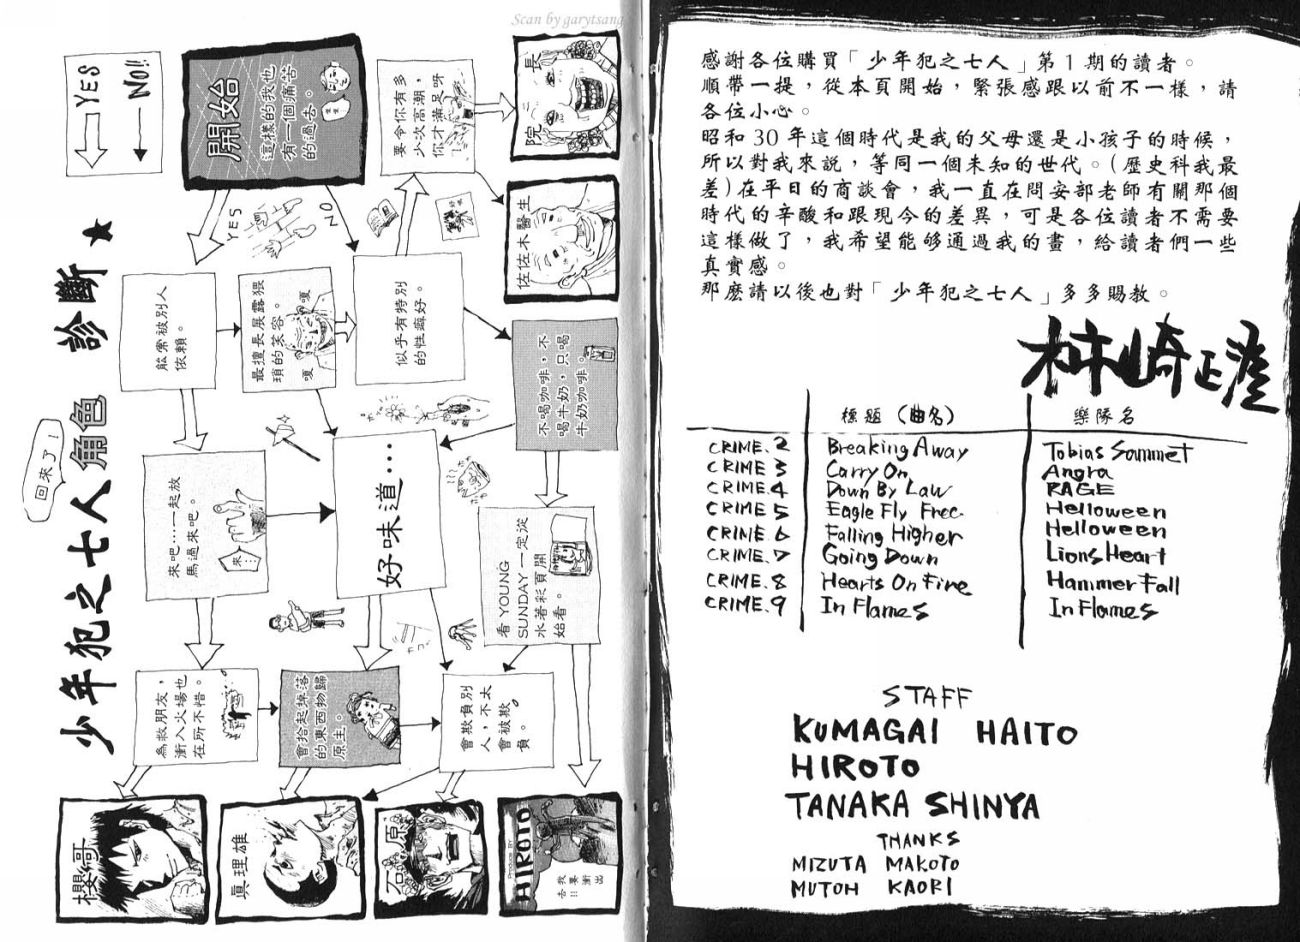 Scan by garytsang
少年犯之七人角色 診斷★
回來了！
YES
NO!!
開始
這樣的我也
有一個痛苦
的過去。
YES
NO
要令你有多
少次高潮，
你才滿足呀
院長
佐佐木醫生
能常被別人
依賴。
最擅長展露猥
瑣的笑容。
嗄
嗄
似乎有特別
的性癖好。
不喝咖啡，不
喝牛奶，只喝
牛奶咖啡。
來吧…一起放
馬過來吧。
來…
好味道…
看YOUNG
SUNDAY一定從
水著彩頁開
始看。
為救朋友，
衝入火場也
在所不惜。
會拾起掉落
的東西物歸
原主。
會欺負別
人，不太
會被欺
負。
櫻哥
真理雄
石原
Produce BY
HIROTO
我要衝出
去!!
感謝各位購買「少年犯之七人」第1期的讀者。
順帶一提，從本頁開始，緊張感跟以前不一樣，請
各位小心。
昭和30年這個時代是我的父母還是小孩子的時候，
所以對我來說，等同一個未知的世代。（歷史科我最
差）在平日的商談會，我一直在問安部老師有關那個
時代的辛酸和跟現今的差異，可是各位讀者不需要
這樣做了，我希望能够通過我的畫，給讀者們一些
真實感。
那麽請以後也對「少年犯之七人」多多賜教。
標題（曲名） 樂隊名
CRIME.2 Breaking Away Tobias Sammet
CRIME 3 Carry On Angra
CRIME.4 Down By Law RAGE
CRIME 5 Eagle Fly Free Helloween
CRIME 6 Falling Higher Helloween
CRIME.7 Going Down Lions Heart
CRIME.8 Hearts On Fire HammerFall
CRIME.9 In Flames In Flames
STAFF
KUMAGAI HAITO
HIROTO
TANAKA SHINYA
THANKS
MIZUTA MAKOTO
MUTOH KAORI